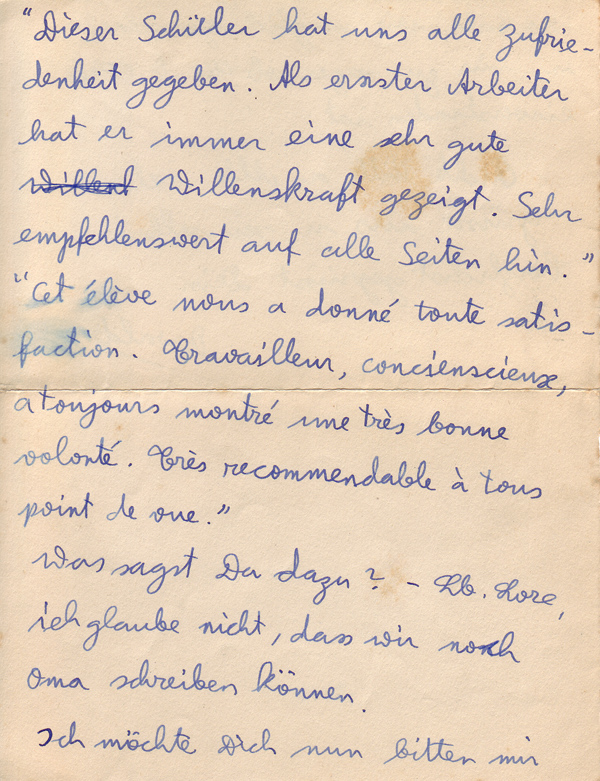 "Dieser Schüler hat uns alle zufrie-
denheit gegeben. Als ernster Arbeiter
hat er immer eine sehr gute
Willenskraft gezeigt. Sehr
empfehlenswert auf alle Seiten hin."
"Cet élève nous a donné toute satis-
faction. Travailleur, concienscieux,
a toujours montré une très bonne
volonté. Très recommendable à tous
point de vue."
Was sagst Du dazu? - Lb. Lore,
ich glaube nicht, dass wir noch
Oma schreiben können.
Ich möchte Dich nun bitten mir